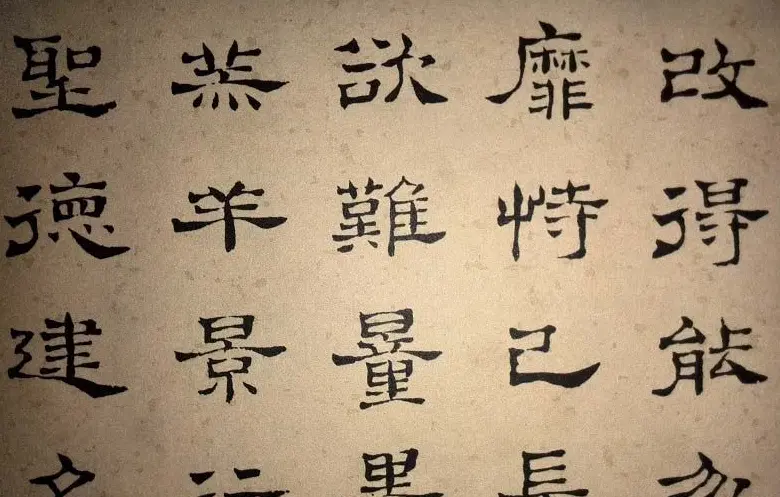 改得能
靡恃己長
欲難量墨
羔羊景行
聖德建名